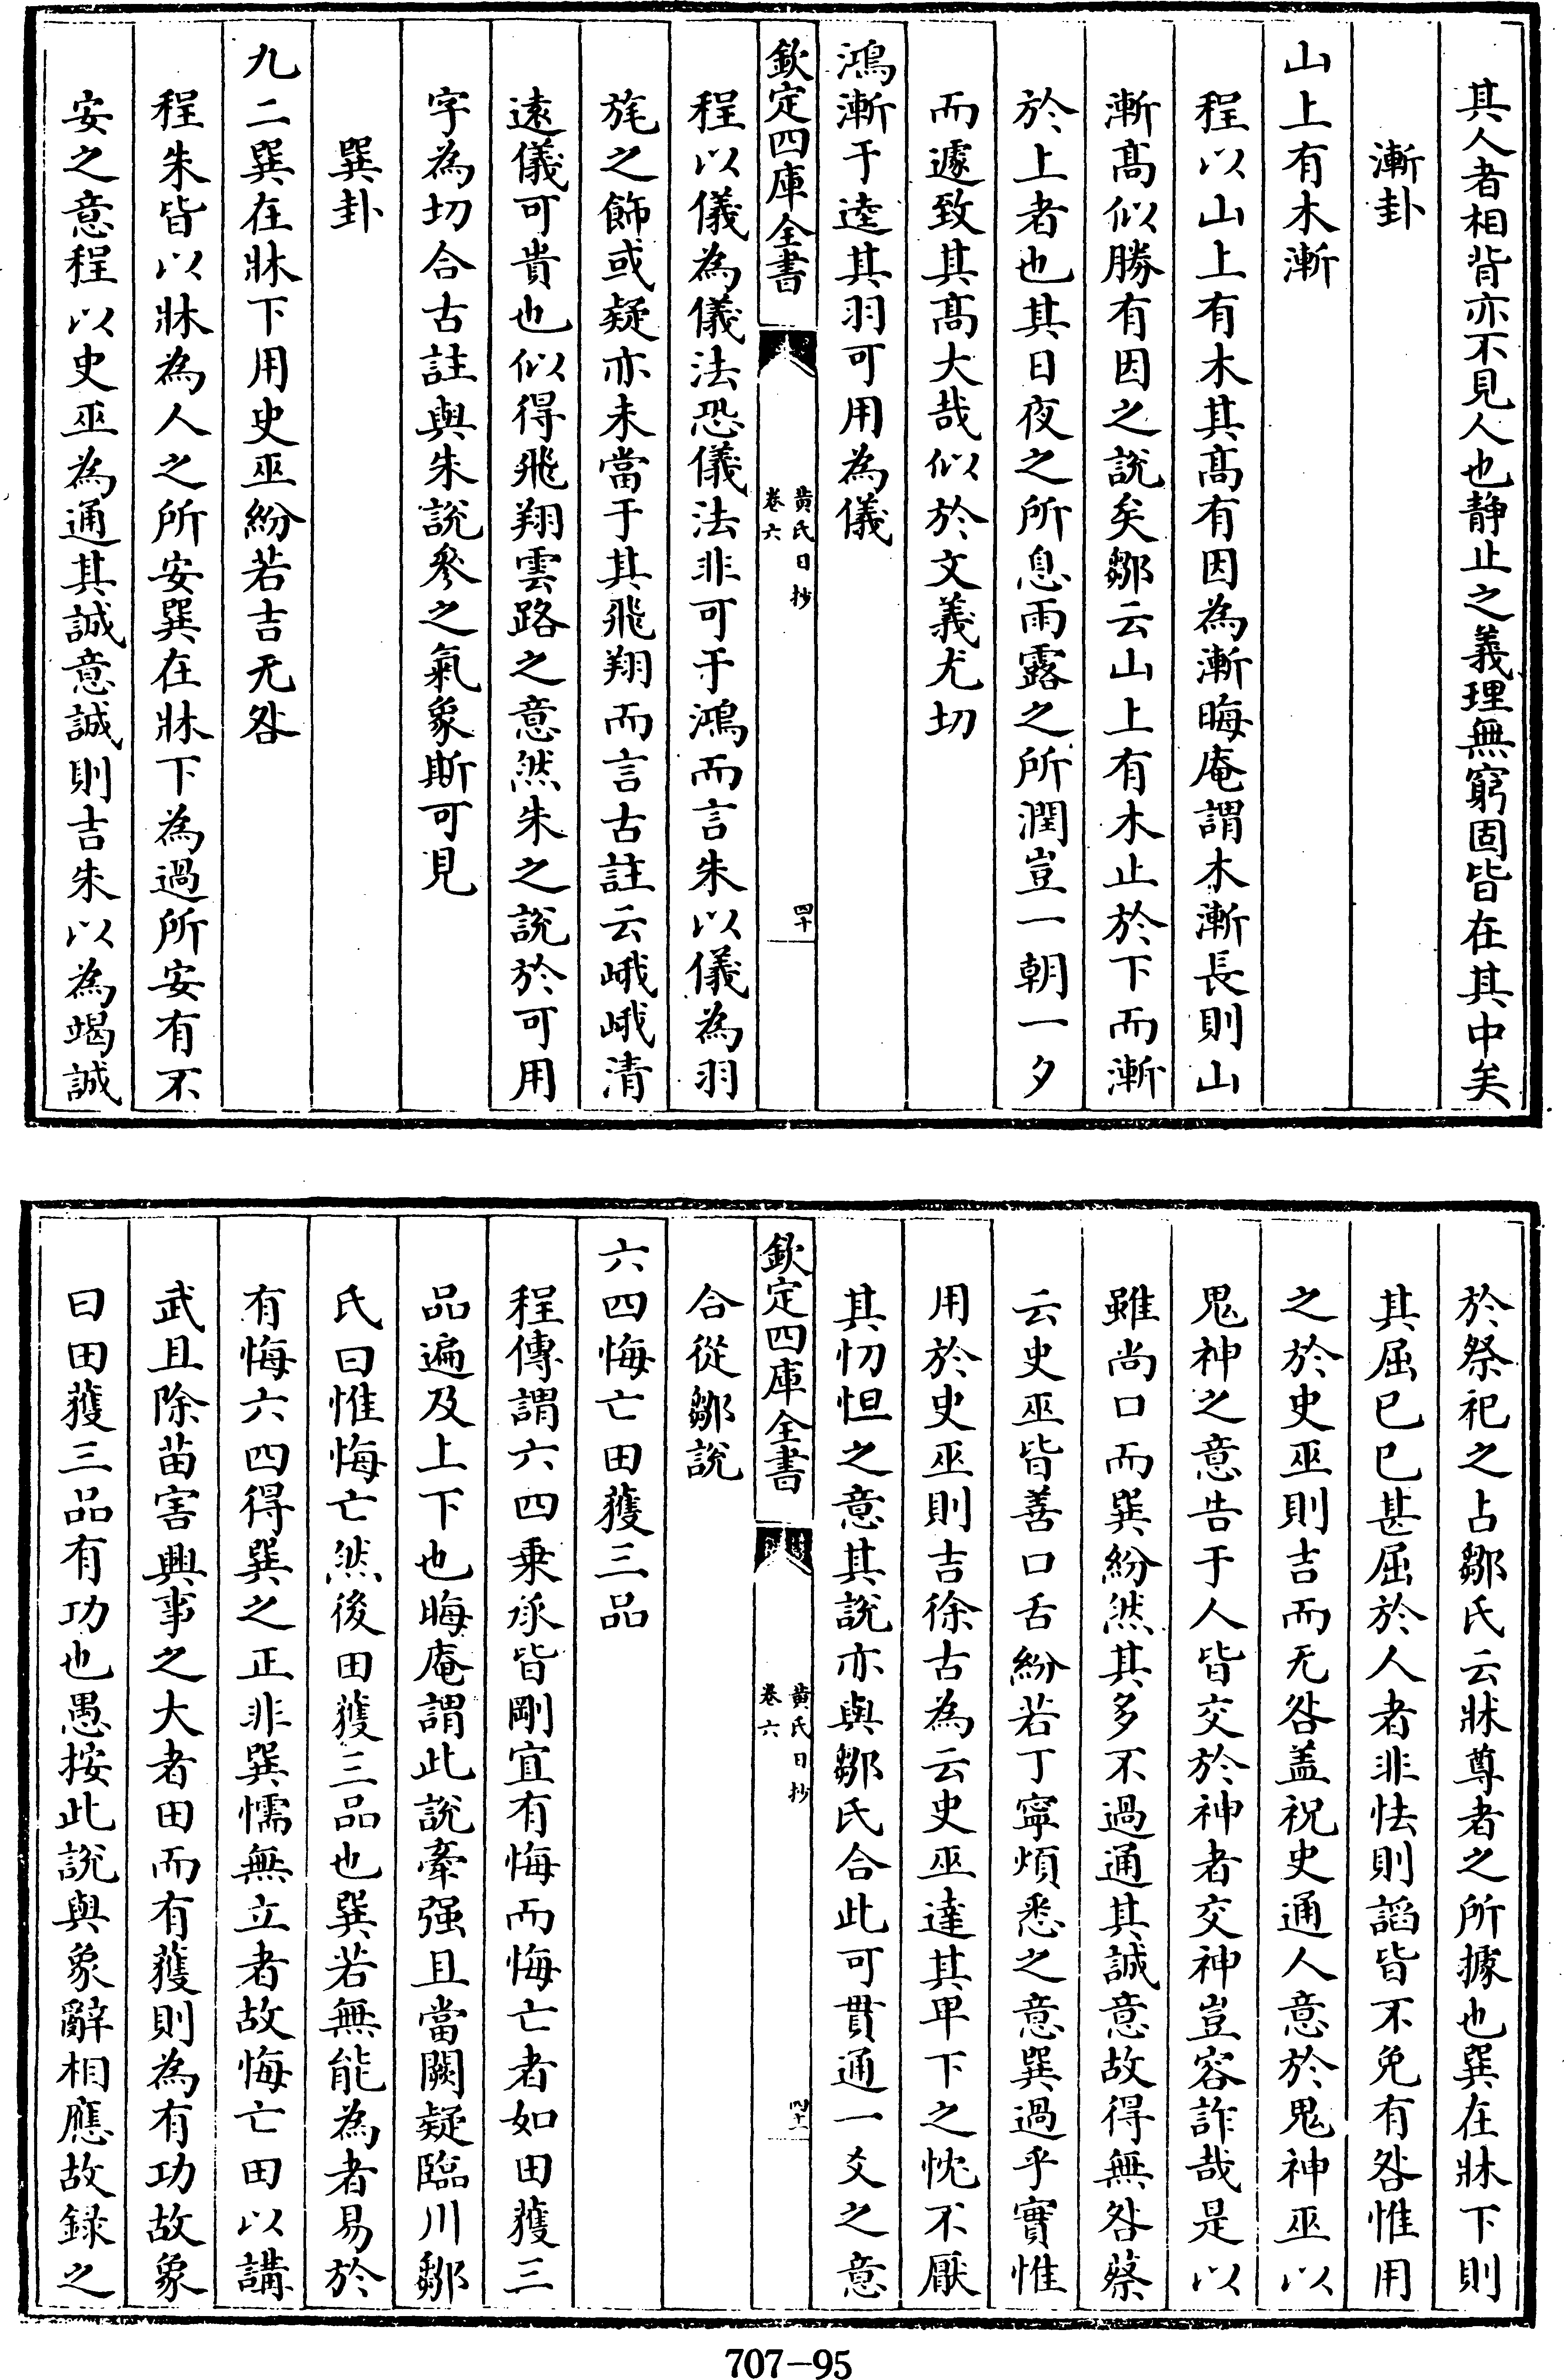 其人者相背亦不見人也静止之義理無窮固皆在其中矣
漸卦
山上有木漸
程以山上有木其髙有因為漸晦庵謂木漸長則山
漸髙似勝有因之說矣鄒云山上有木止於下而漸
於上者也其日夜之所息雨露之所潤豈一朝一夕
而遽致其髙大哉似於文義尤切
鴻漸于逵其羽可用為儀
欽定四庫全書
黄氏日抄
卷六
四十
程以儀為儀法恐儀法非可于鴻而言朱以儀為羽
旄之飾或疑亦未當于其飛翔而言古註云峨峨清
遠儀可貴也似得飛翔雲路之意然朱之說於可用
字為切合古註與朱說參之氣象斯可見
巽卦
九二巽在牀下用史巫紛若吉无咎
程朱皆以牀為人之所安巽在牀下為過所安有不
安之意程以史巫為通其誠意誠則吉朱以為竭誠
於祭祀之占鄒氏云牀尊者之所據也巽在牀下則
其屈已已甚屈於人者非怯則謟皆不免有咎惟用
之於史巫則吉而无咎盖祝史通人意於鬼神巫以
鬼神之意告于人皆交於神者交神豈容詐哉是以
雖尚口而巽紛然其多不過通其誠意故得無咎蔡
云史巫皆善口舌紛若丁寧煩悉之意巽過乎實惟
用於史巫則吉徐古為云史巫達其卑下之忱不厭
其忉怛之意其說亦與鄒氏合此可貫通一爻之意
欽定四庫全書
黄氏日抄
卷六
四十一
合從鄒說
六四悔亡田獲三品
程傳謂六四乗承皆剛宜有悔而悔亡者如田獲三
品遍及上下也晦庵謂此說牽强且當闕疑臨川鄒
氏曰惟悔亡然後田獲三品也巽若無能為者易於
有悔六四得巽之正非巽懦無立者故悔亡田以講
武且除苗害興事之大者田而有獲則為有功故象
曰田獲三品有功也愚按此說與象辭相應故録之
707-95